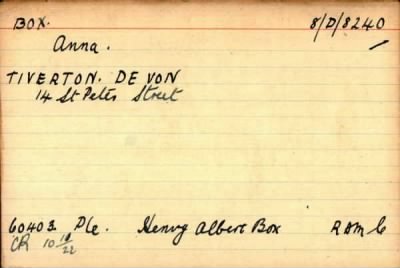 BOX. 8/D/8240
Anna.
TIVERTON. DEVON
14 St Peter Street
60403 Pte. Henry Albert Box RAMC
CR 10 10/22